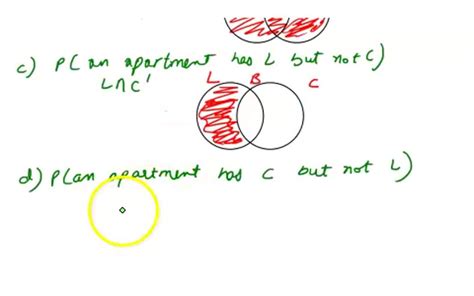 c) P(an apartment has L but not C)
L∩C' L B C
d) P(an apartment has C but not L)